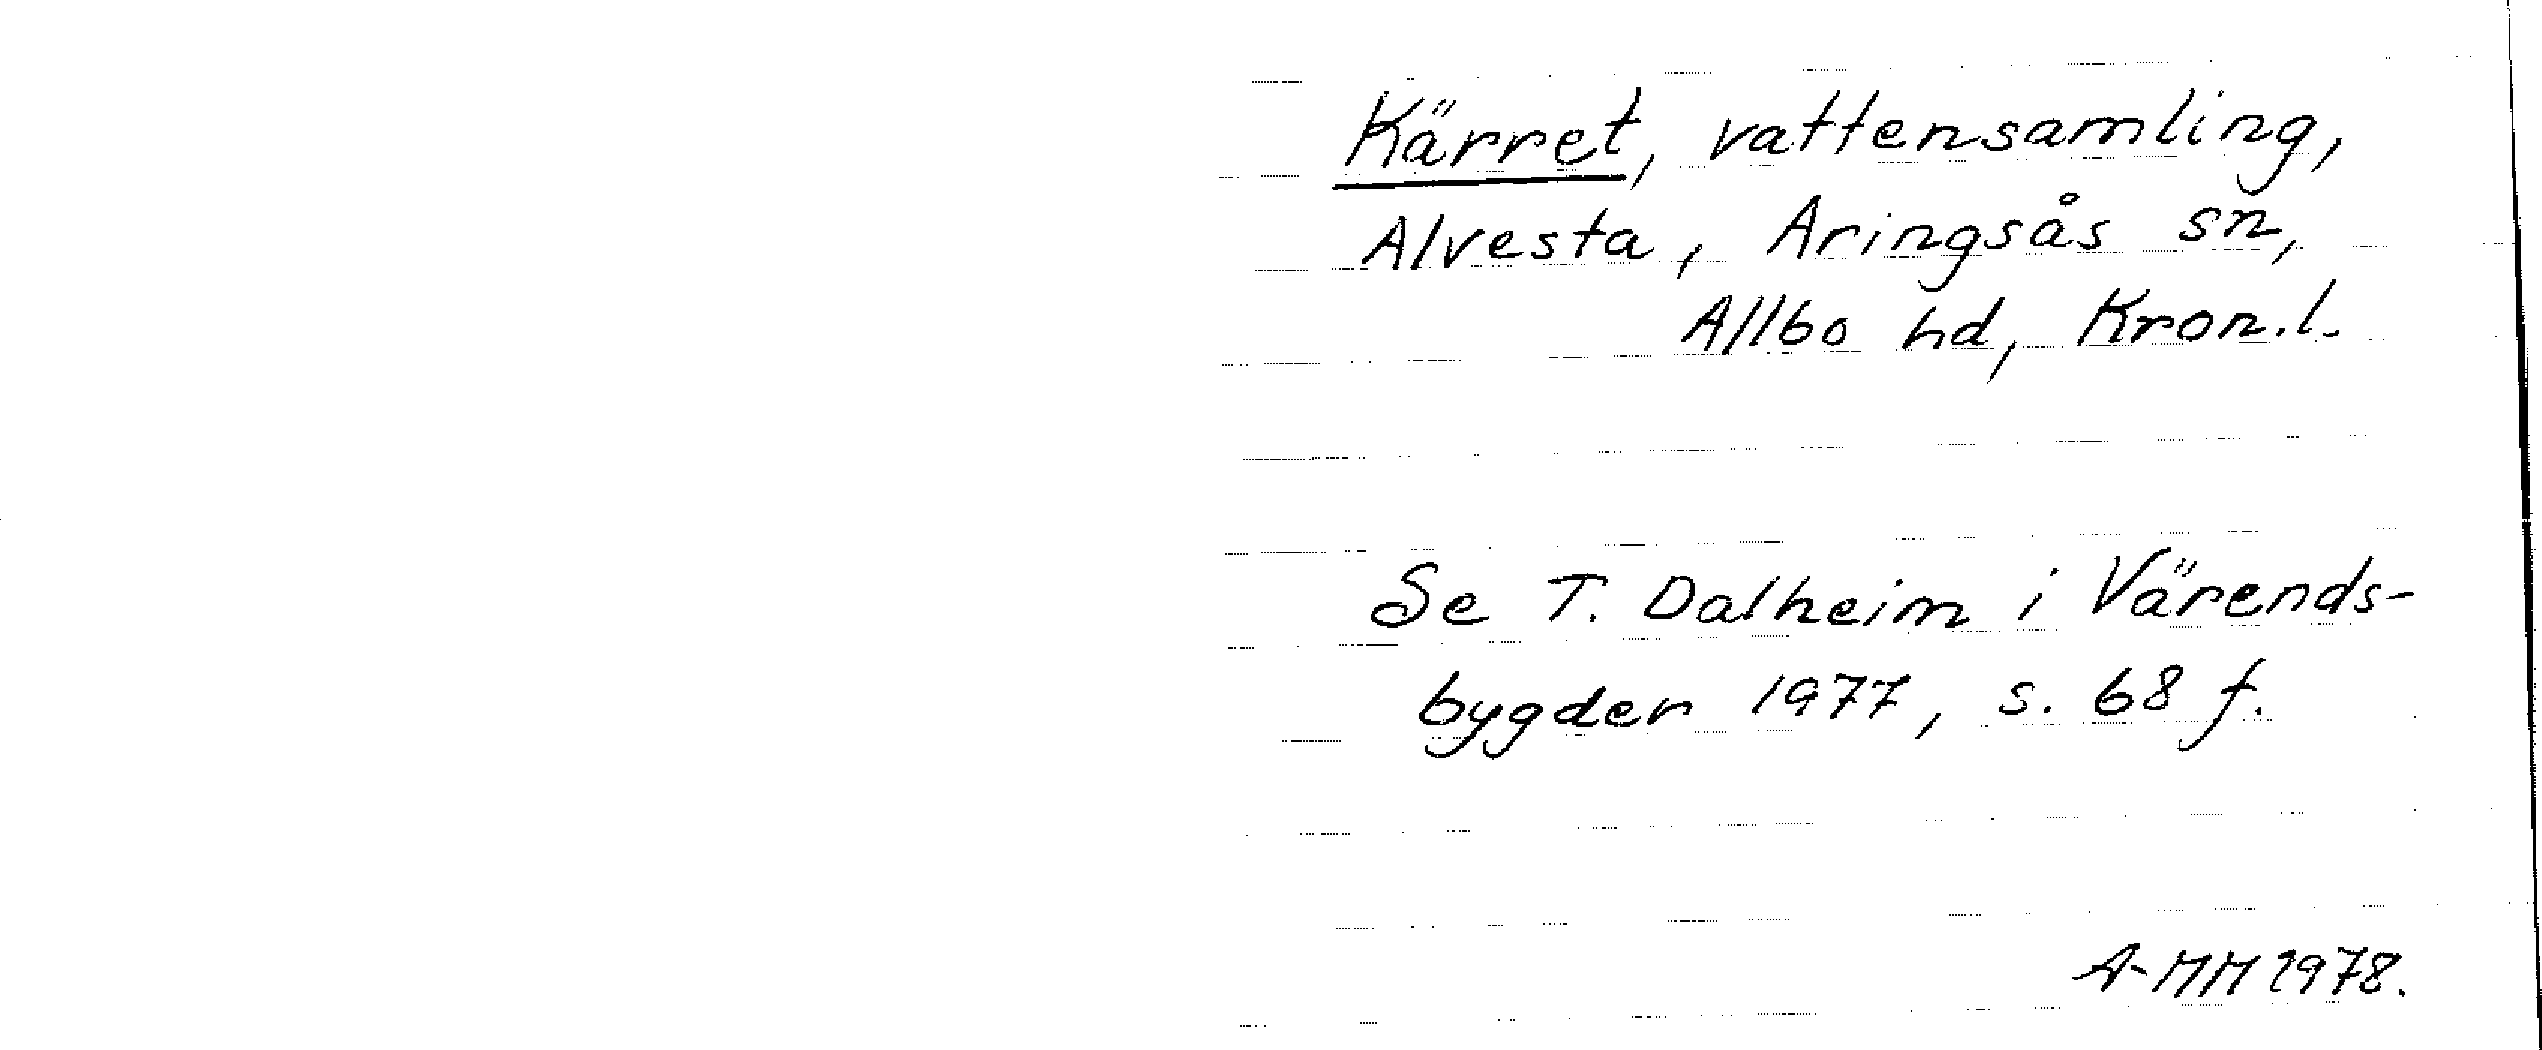 Kärret, vattensamling,
Alvesta, Aringsås sn,
Allbo hd, Kron.l.
Se T. Dalheim i Värends-
bygder 1977, s. 68 f.
A-MM 1978.